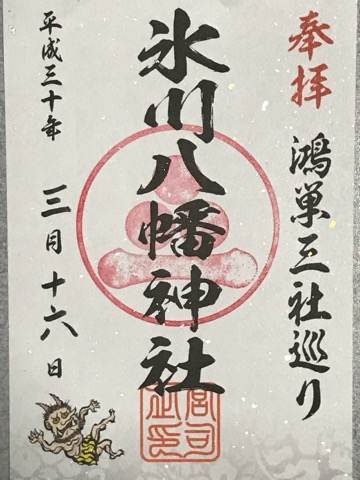 奉拝
鴻巣三社巡り
氷川八幡神社
宮司之印
平成三十年
三月十六日